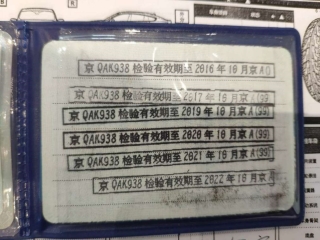 京 QAK938 检验有效期至2016 年10 月京 A
京 QAK938 检验有效期至2017 年10 月京 A(99)
京 QAK938 检验有效期至2019 年10 月京 A(99)
京 QAK938 检验有效期至2020 年10 月京 A(99)
京 QAK938 检验有效期至2021 年10 月京 A(99)
京 QAK938 检验有效期至2022 年10 月京